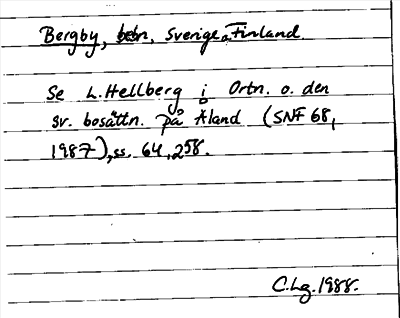 Bergby, bebn, Sverige o. Finland
Se L. Hellberg i Ortn. o. den
sv. bosättn. på Åland (SNF 68,
1987), ss. 64, 258.
C.Lg. 1988.